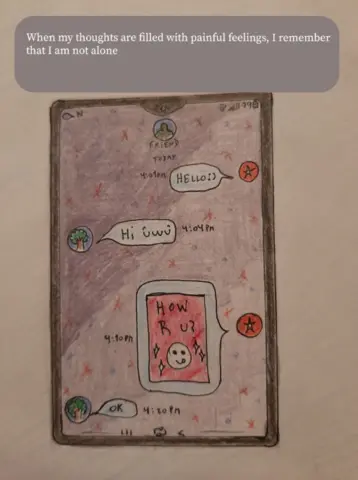 When my thoughts are filled with painful feelings, I remember
that I am not alone
FRIEND
TODAY
4:01PM HELLO:)
Hi ûwû 4:04PM
HOW
R U?
4:10PM
OK 4:20PM